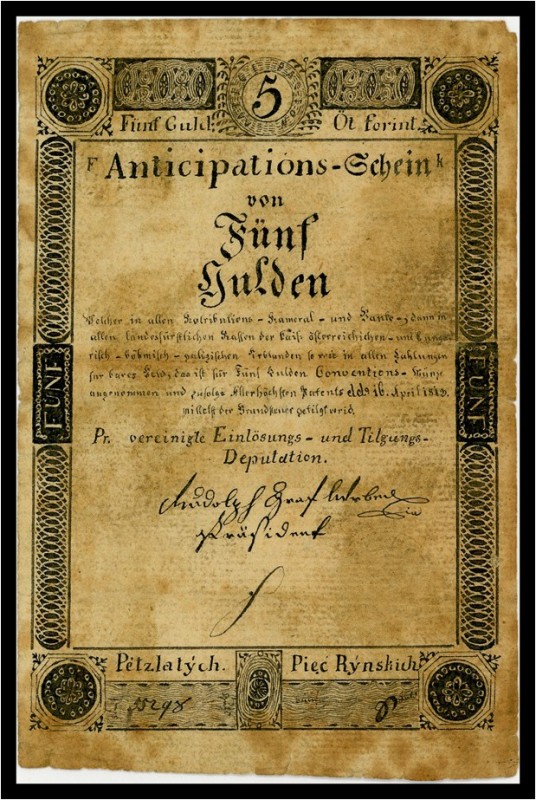 5
Fünf Guld. Öt forint.
F Anticipations-Schein k
von
Fünf
Gulden
Welcher in allen Kontributions - Kameral - und Banko -, dann in
allen landesfürstlichen Kassen der
böhmisch - galizischen Erblanden so wie in allen Zahlungen
für bares Geld, das ist für Fünf Gulden Conventions - Münze
angenommen und zufolge Allerhöchsten Patents ddo 16. April 1813.
mittelst der Grundsteuer getilgt wird.
FÜNF
FÜNF
Pr. vereinigte Einlösungs - und Tilgungs-
Deputation.
Rudolph Graf
Präsident
Pětzlatých. Pięć Rýnskich